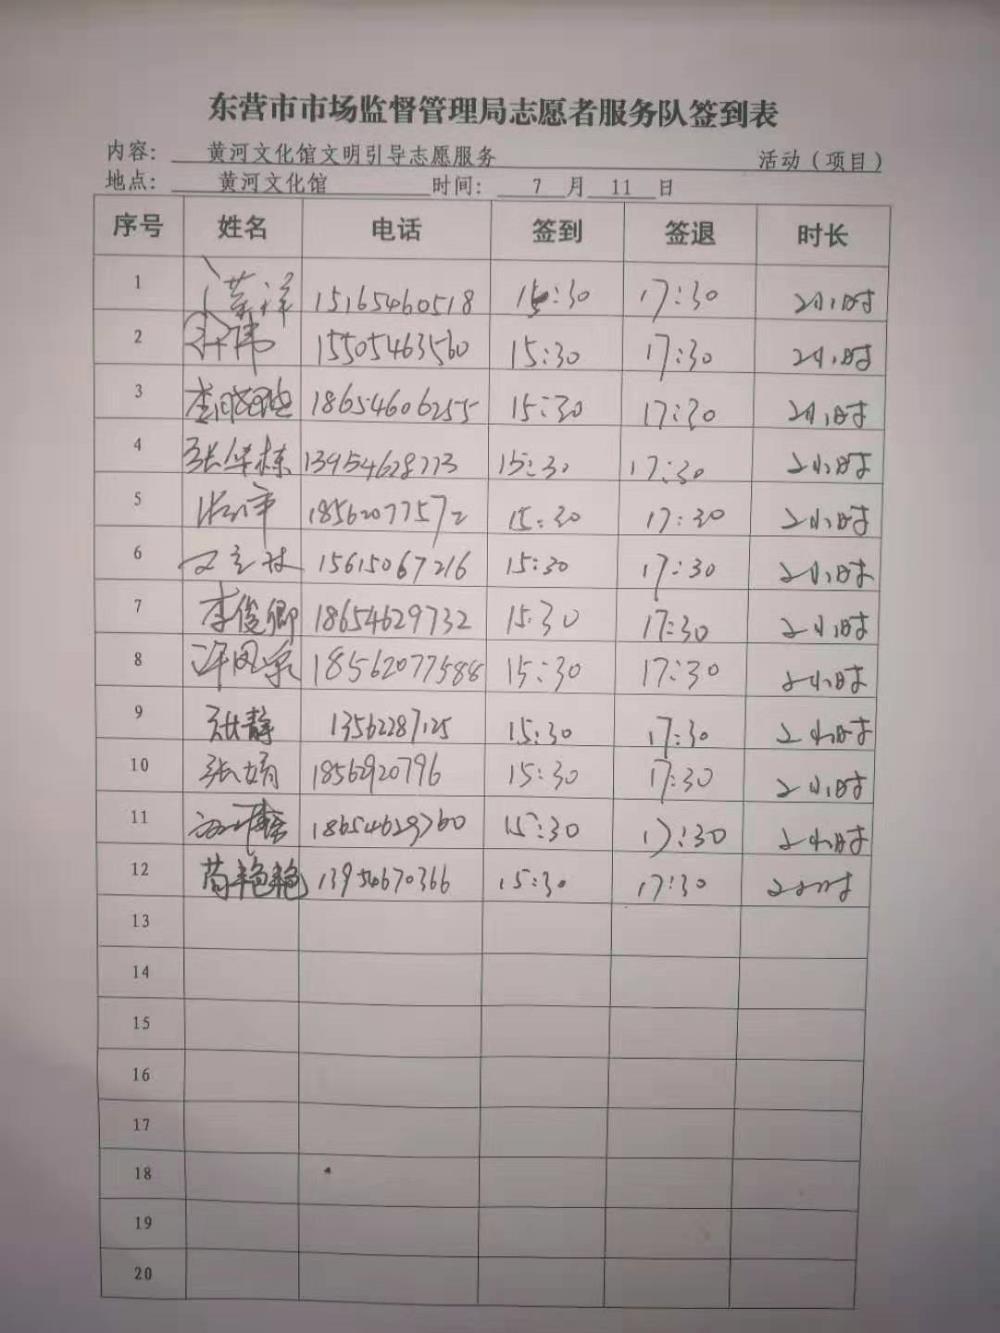 东营市市场监督管理局志愿者服务队签到表
内容: 黄河文化馆文明引导志愿服务 活动(项目)
地点: 黄河文化馆 时间: 7 月 11 日
序号 姓名 电话 签到 签退 时长
1 15165460518 15:30 17:30 2小时
2 15505463560 15:30 17:30 2小时
3 李晓 18654606255 15:30 17:30 2小时
4 张华栋 13954628773 15:30 17:30 2小时
5 18562077572 15:30 17:30 2小时
6 15615067216 15:30 17:30 2小时
7 李俊卿 18654629732 15:30 17:30 2小时
8 许凤 18562077588 15:30 17:30 2小时
9 张静 13562287125 15:30 17:30 2小时
10 张娟 1856920796 15:30 17:30 2小时
11 18654629760 15:30 17:30 2小时
12 苟艳艳 13954670366 15:30 17:30 2小时
13
14
15
16
17
18
19
20